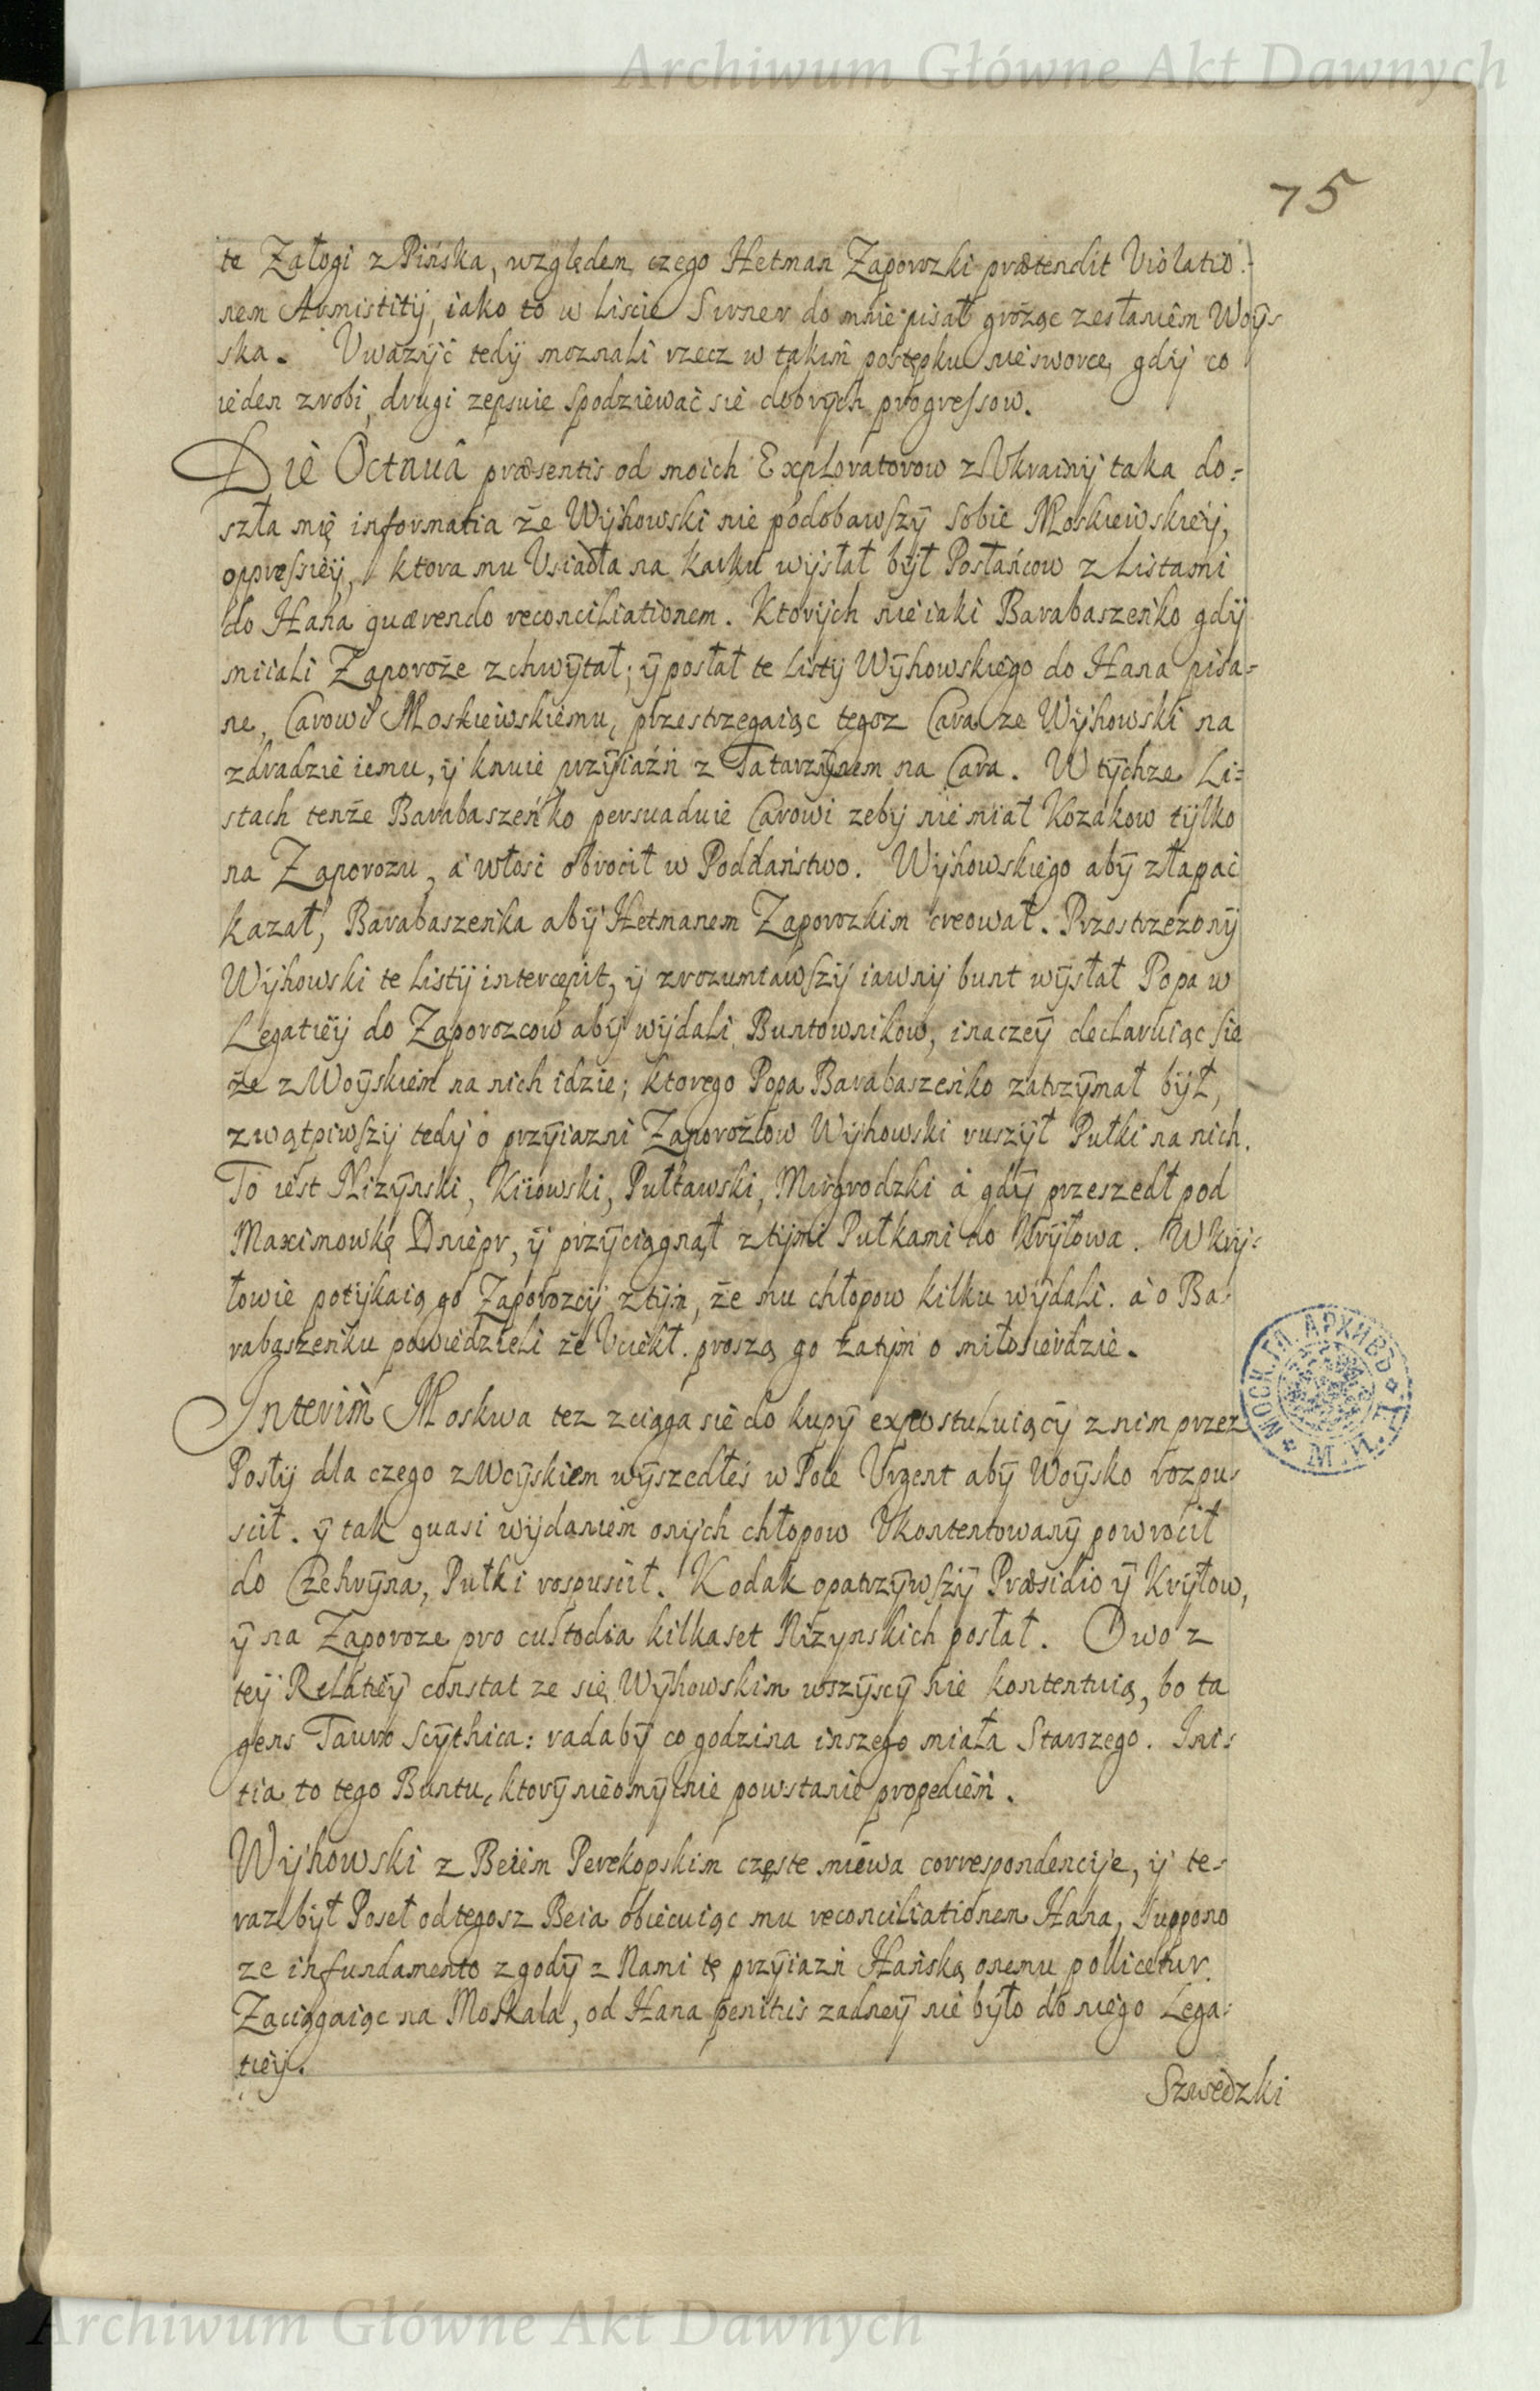 Archiwum Główne Akt Dawnych
75
te Załogi z Pińska, względem czego Hetman Zaporozki prætendit Violatio-
nem Armistitij, iako to w liscie Surner do mnie pisał grożąc zesłaniem Woÿs-
ska. Uwazijć tedij moznali rzecz w takim postępku niesworce, gdij co
ieden zrobi, drugi zepsuie spodziewać sie dobrÿch progressow.
Die Octauâ præsentis od moich Exploratorow z Ukrainij taka do-
szła mię informatia że Wijhowski nie podobawszÿ sobie Moskiewskieij,
oppressieij, ktora mu Usiadła na karku wijsłał bÿł Posłańcow z Listami
do Hana quærendo reconciliationem. Ktorijch nieiaki Barabaszeńko gdij
miiali Zaporoże zchwÿtał; ÿ posłał te listij Wÿhowskiego do Hana pisa-
ne, Carowi Moskiewskiemu, przestrzegaiąc tegoz Cara ze Wijhowski na
zdradzie iemu, ij knuie przÿiaźń z Tatarzÿnem na Cara. W tÿchze Li-
stach tenże Barabaszeńko persuaduie Carowi zebij nie miał Kozakow tÿlko
na Zaporozu, a włosć obrocił w Poddaństwo. Wijhowskiego abÿ złapać
kazał, Barabaszeńka abij Hetmanem Zaporozkim creował. Przestrzezonÿ
Wijhowski te listij intercepit, ij zrozumiawszij iawnij bunt wÿsłał Popa w
Legatieij do Zaporozcow abij wijdali Buntownikow, inaczeÿ declaruiąc sie
że z Woÿskiem na nich idzie; ktorego Popa Barabaszeńko zatrzÿmał bÿł,
zwątpiwszij tedij o przÿiazni Zaporożcow Wijhowski ruszÿł Pułki na nich.
To iest Nizÿnski, Kiiowski, Pułtawski, Mirgrodzki a gdÿ przeszedł pod
Maximowkę Dniepr, ij przÿciągnął z tijmi Pułkami do Krÿłowa. W Krij-
łowie potijkaią go Zaporozcij z tijm, że mu chłopow kilku wÿdali. a o Ba-
rabaszeńku powiedzieli że Uciekł. proszą go zatijm o miłosierdzie.
Interim Moskwa tez zciąga sie do kupÿ expostuluiącÿ z nim przez
Posłij dla czego z Woÿskiem wÿszedłeś w Pole Urgent abÿ Woÿsko rozpu-
scił. ÿ tak quasi wijdaniem onijch chłopow Ukontentowanÿ powrocił
do Czehrÿna, Pułki rospuscił. Kodak opatrzÿwszÿ Præsidio ÿ Krÿłow,
ÿ na Zaporoze pro custodia kilkaset Nizynskich posłał. Owo z
teij Relatieÿ constat ze się Wÿhowskim wszÿscÿ nie kontentuią, bo ta
gens Tauro Scÿthica: radabÿ co godzina inszego miała Starszego. Ini-
tia to tego Buntu, ktorÿ nieomÿlnie powstanie propediem.
Wijhowski z Beiem Perekopskim częste miewa correspondencije, ij te-
raz bÿł Poseł od tegosz Beia obiecuiąc mu reconciliationem Hana, Suppono
ze in fundamento zgodÿ z Nami tę przÿiazń Hańską onemu pollicetur.
Zaciągaiąc na Moskala, od Hana penitus zadneÿ nie było do niego Lega-
tieij.
Szwedzki
МОСК. ГЛ. АРХИВЪ
М. И. Д.
Archiwum Główne Akt Dawnych